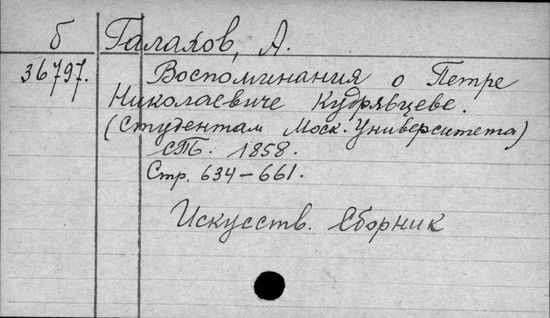 б Галахов, А.
36797. Воспоминания о Петре
Николаевиче Кудрявцеве.
(Студентам Моск. Университета)
СПб. 1858.
Стр. 634-661.
Искусств. Сборник